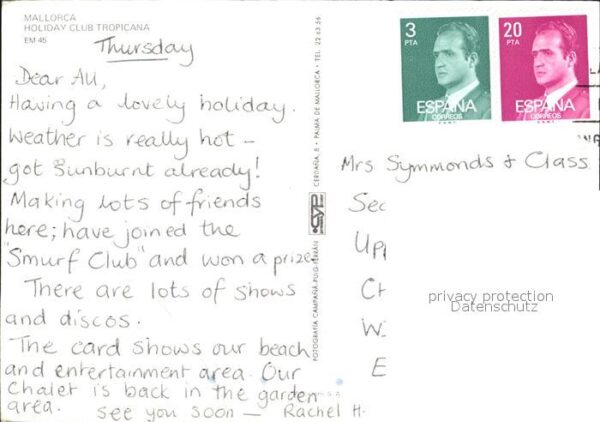 MALLORCA
HOLIDAY CLUB TROPICANA
EM 45
Thursday
Dear All,
Having a lovely holiday.
Weather is really hot –
got Sunburnt already!
Making lots of friends
here; have joined the
"Smurf Club" and won a prize.
There are lots of shows
and discos.
The card shows our beach
and entertainment area. Our
Chalet is back in the garden
area. See you soon — Rachel H.
FOTOGRAFIA CAMPAÑÁ-PUIG-FERRÁN
CYP
CERDAÑA, 8 - PALMA DE MALLORCA - TEL. 22 63 56
3
PTA
ESPAÑA
CORREOS
20
PTA
ESPAÑA
CORREOS
Mrs Symmonds & Class
Sec
Upp
Ch
Wi
E
privacy protection
Datenschutz